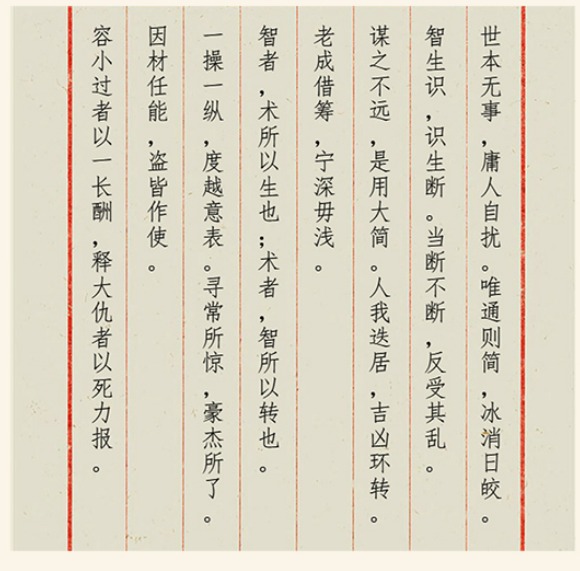 世本无事，庸人自扰。唯通则简，冰消日皎。
智生识，识生断。当断不断，反受其乱。
谋之不远，是用大简。人我迭居，吉凶环转。
老成借筹，宁深毋浅。
智者，术所以生也；术者，智所以转也。
一操一纵，度越意表。寻常所惊，豪杰所了。
因材任能，盗皆作使。
容小过者以一长酬，释大仇者以死力报。